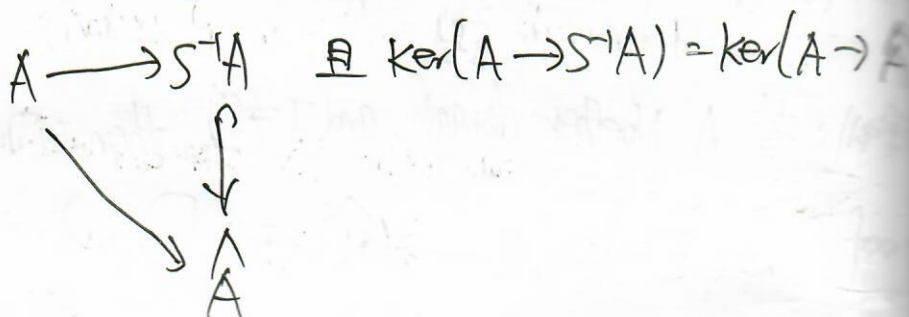 A → S⁻¹A 且 ker(A → S⁻¹A) = ker(A →
Â